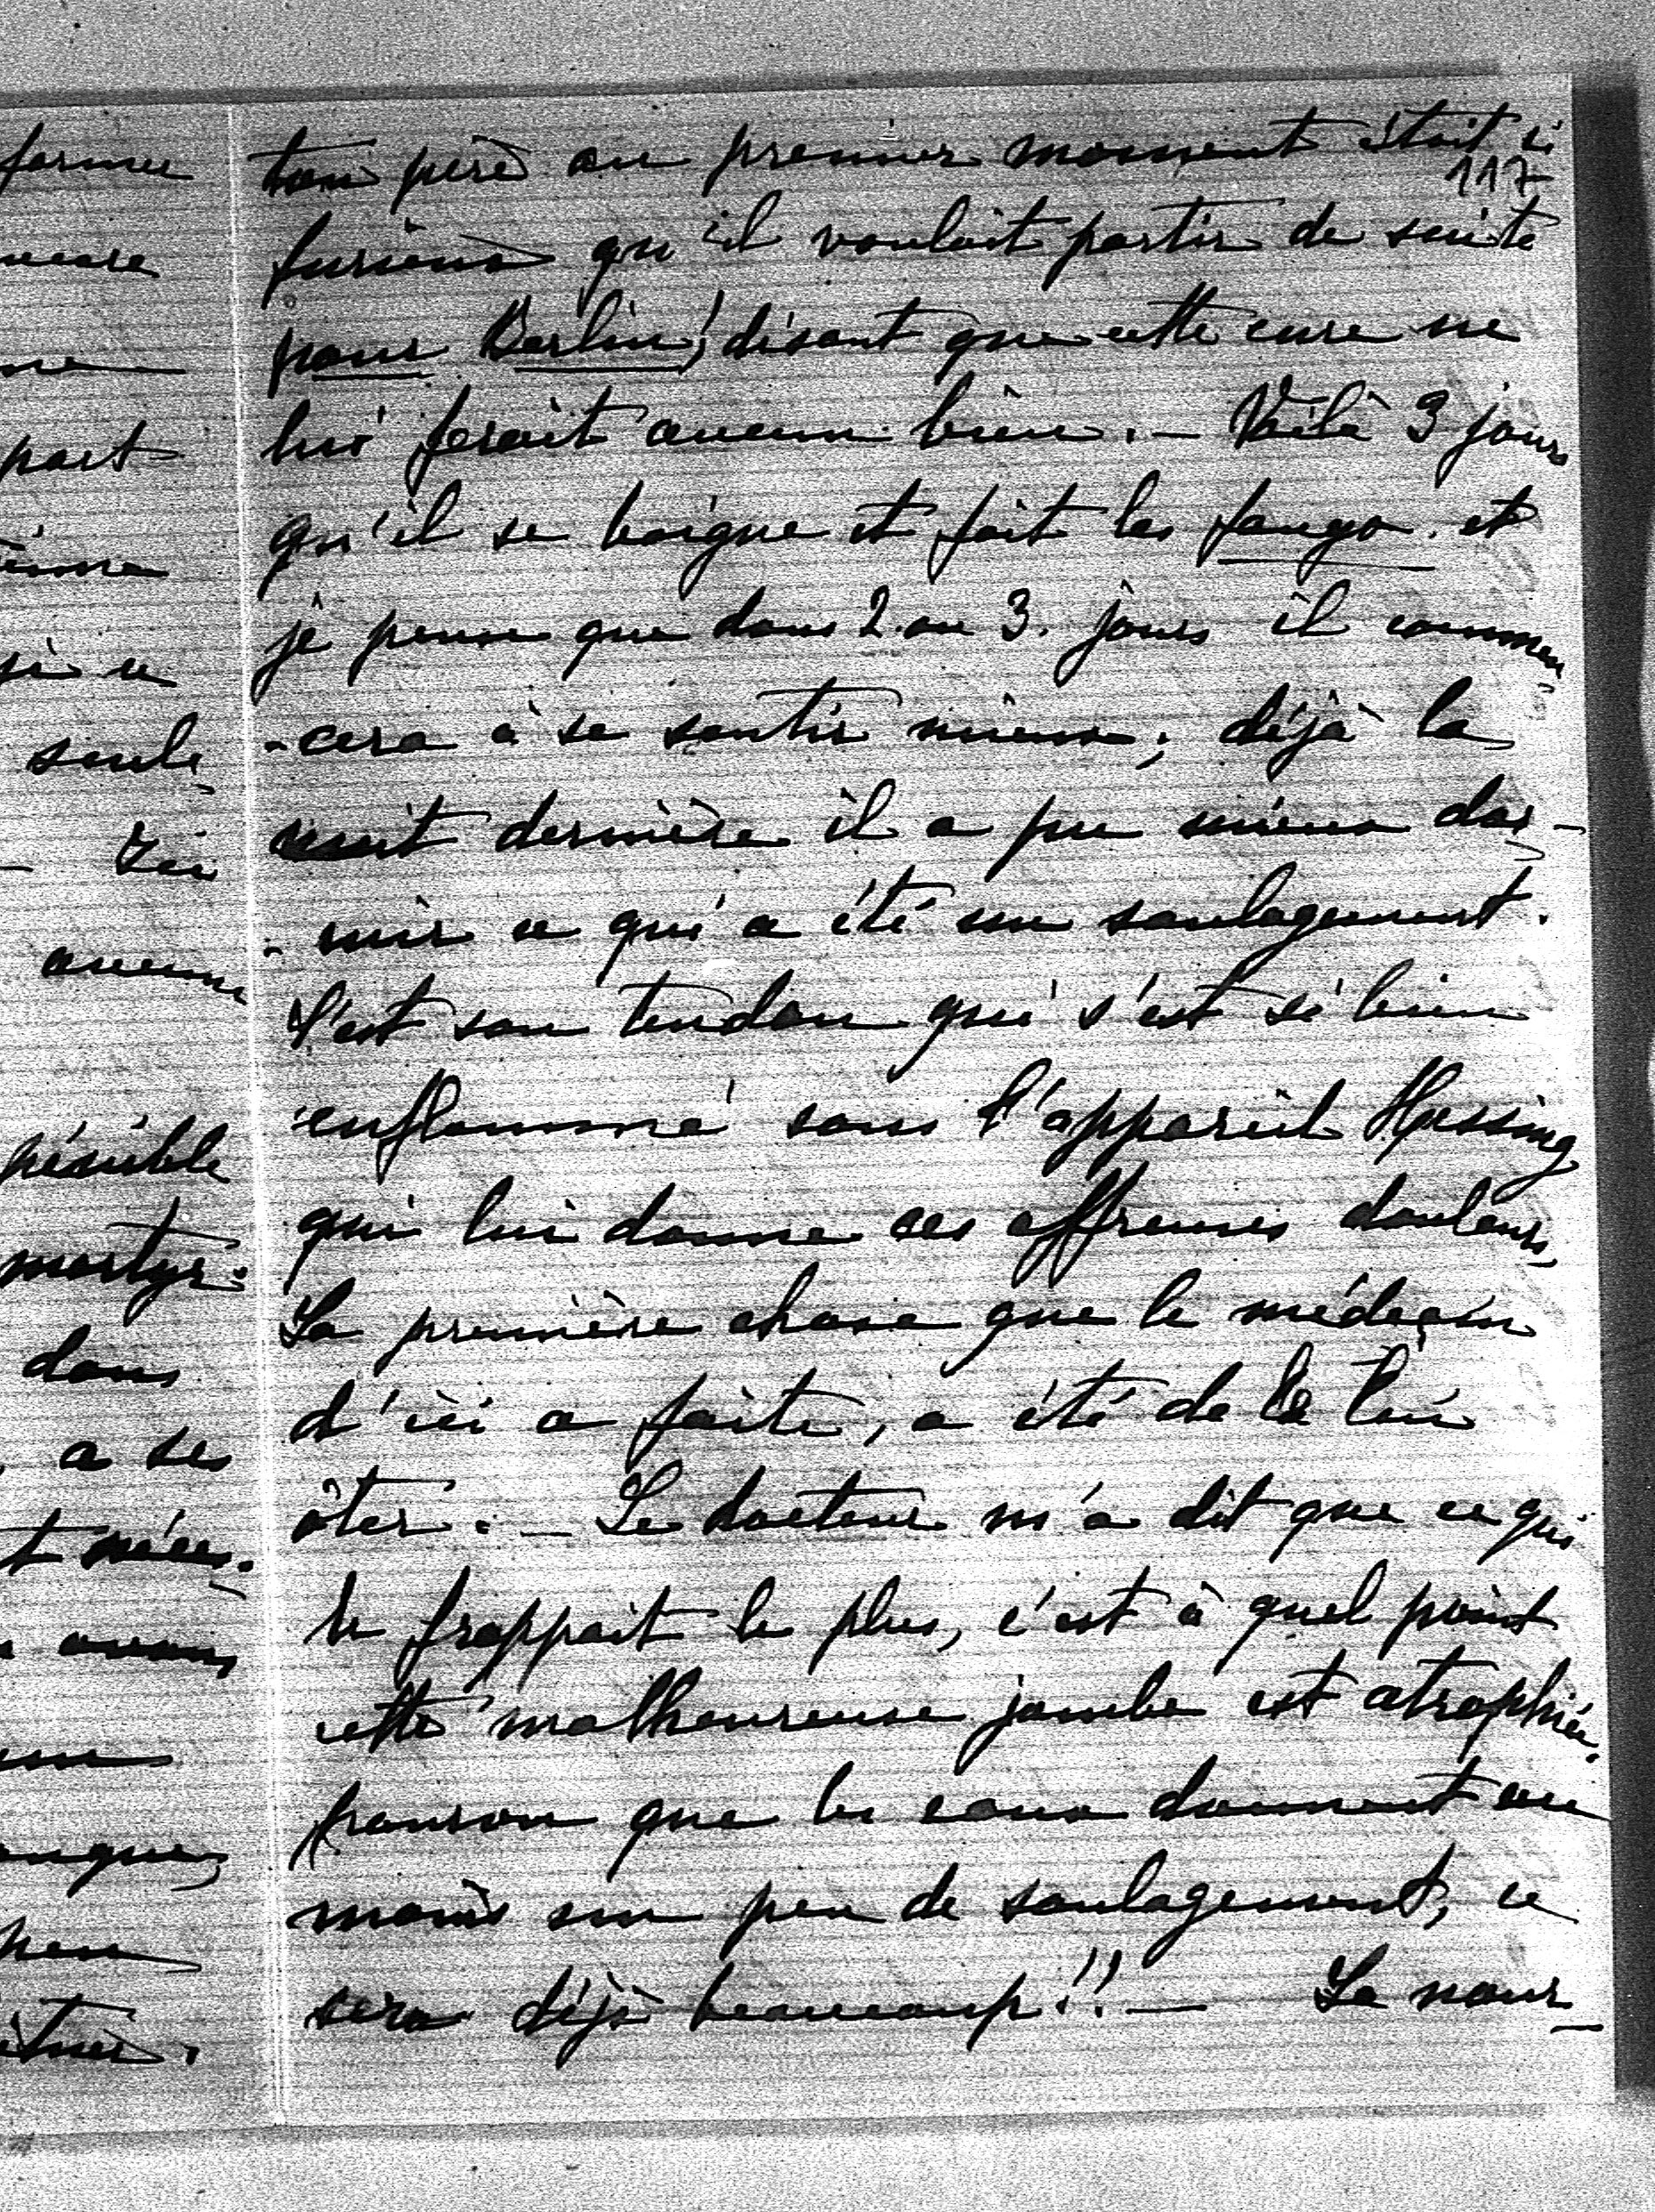 ton père au premier moment était si
117
furieux qu'il voulait partir de suite
pour Berlin! disant que cette cure ne
lui ferait aucun bien. — Voilà 3 jours
qu'il se baigne et fait les fango et
je pense que dans 2 ou 3. jours il commen
-cera à se sentir mieux; déjà la
nuit dernière il a pu mieux dor-
-mir ce qui a été un soulagement.
C'est son tendon qui s'est si bien
enflammé sous l'appareil Hessing
qui lui donne ces affreuses douleurs,
La première chose que le médecin
d'ici a faite, a été de le lui
ôter. — Le docteur m'a dit que ce qui
le frappait le plus, c'est à quel point
cette malheureuse jambe est atrophiée.
pourvu que les eaux donnent au
moins un peu de soulagement, ce
sera déjà beaucoup!! — La nour-
part
si ce
seule
Ici
aucune
pénible
martyr.
dans
a ses
peu